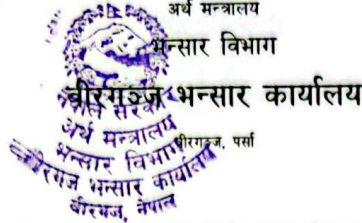 अर्थ मन्त्रालय
भन्सार विभाग
वीरगञ्ज भन्सार कार्यालय
वीरगञ्ज, पर्सा
नेपाल सरकार
अर्थ मन्त्रालय
भन्सार विभाग
वीरगंज भन्सार कार्यालय
वीरगंज, नेपाल